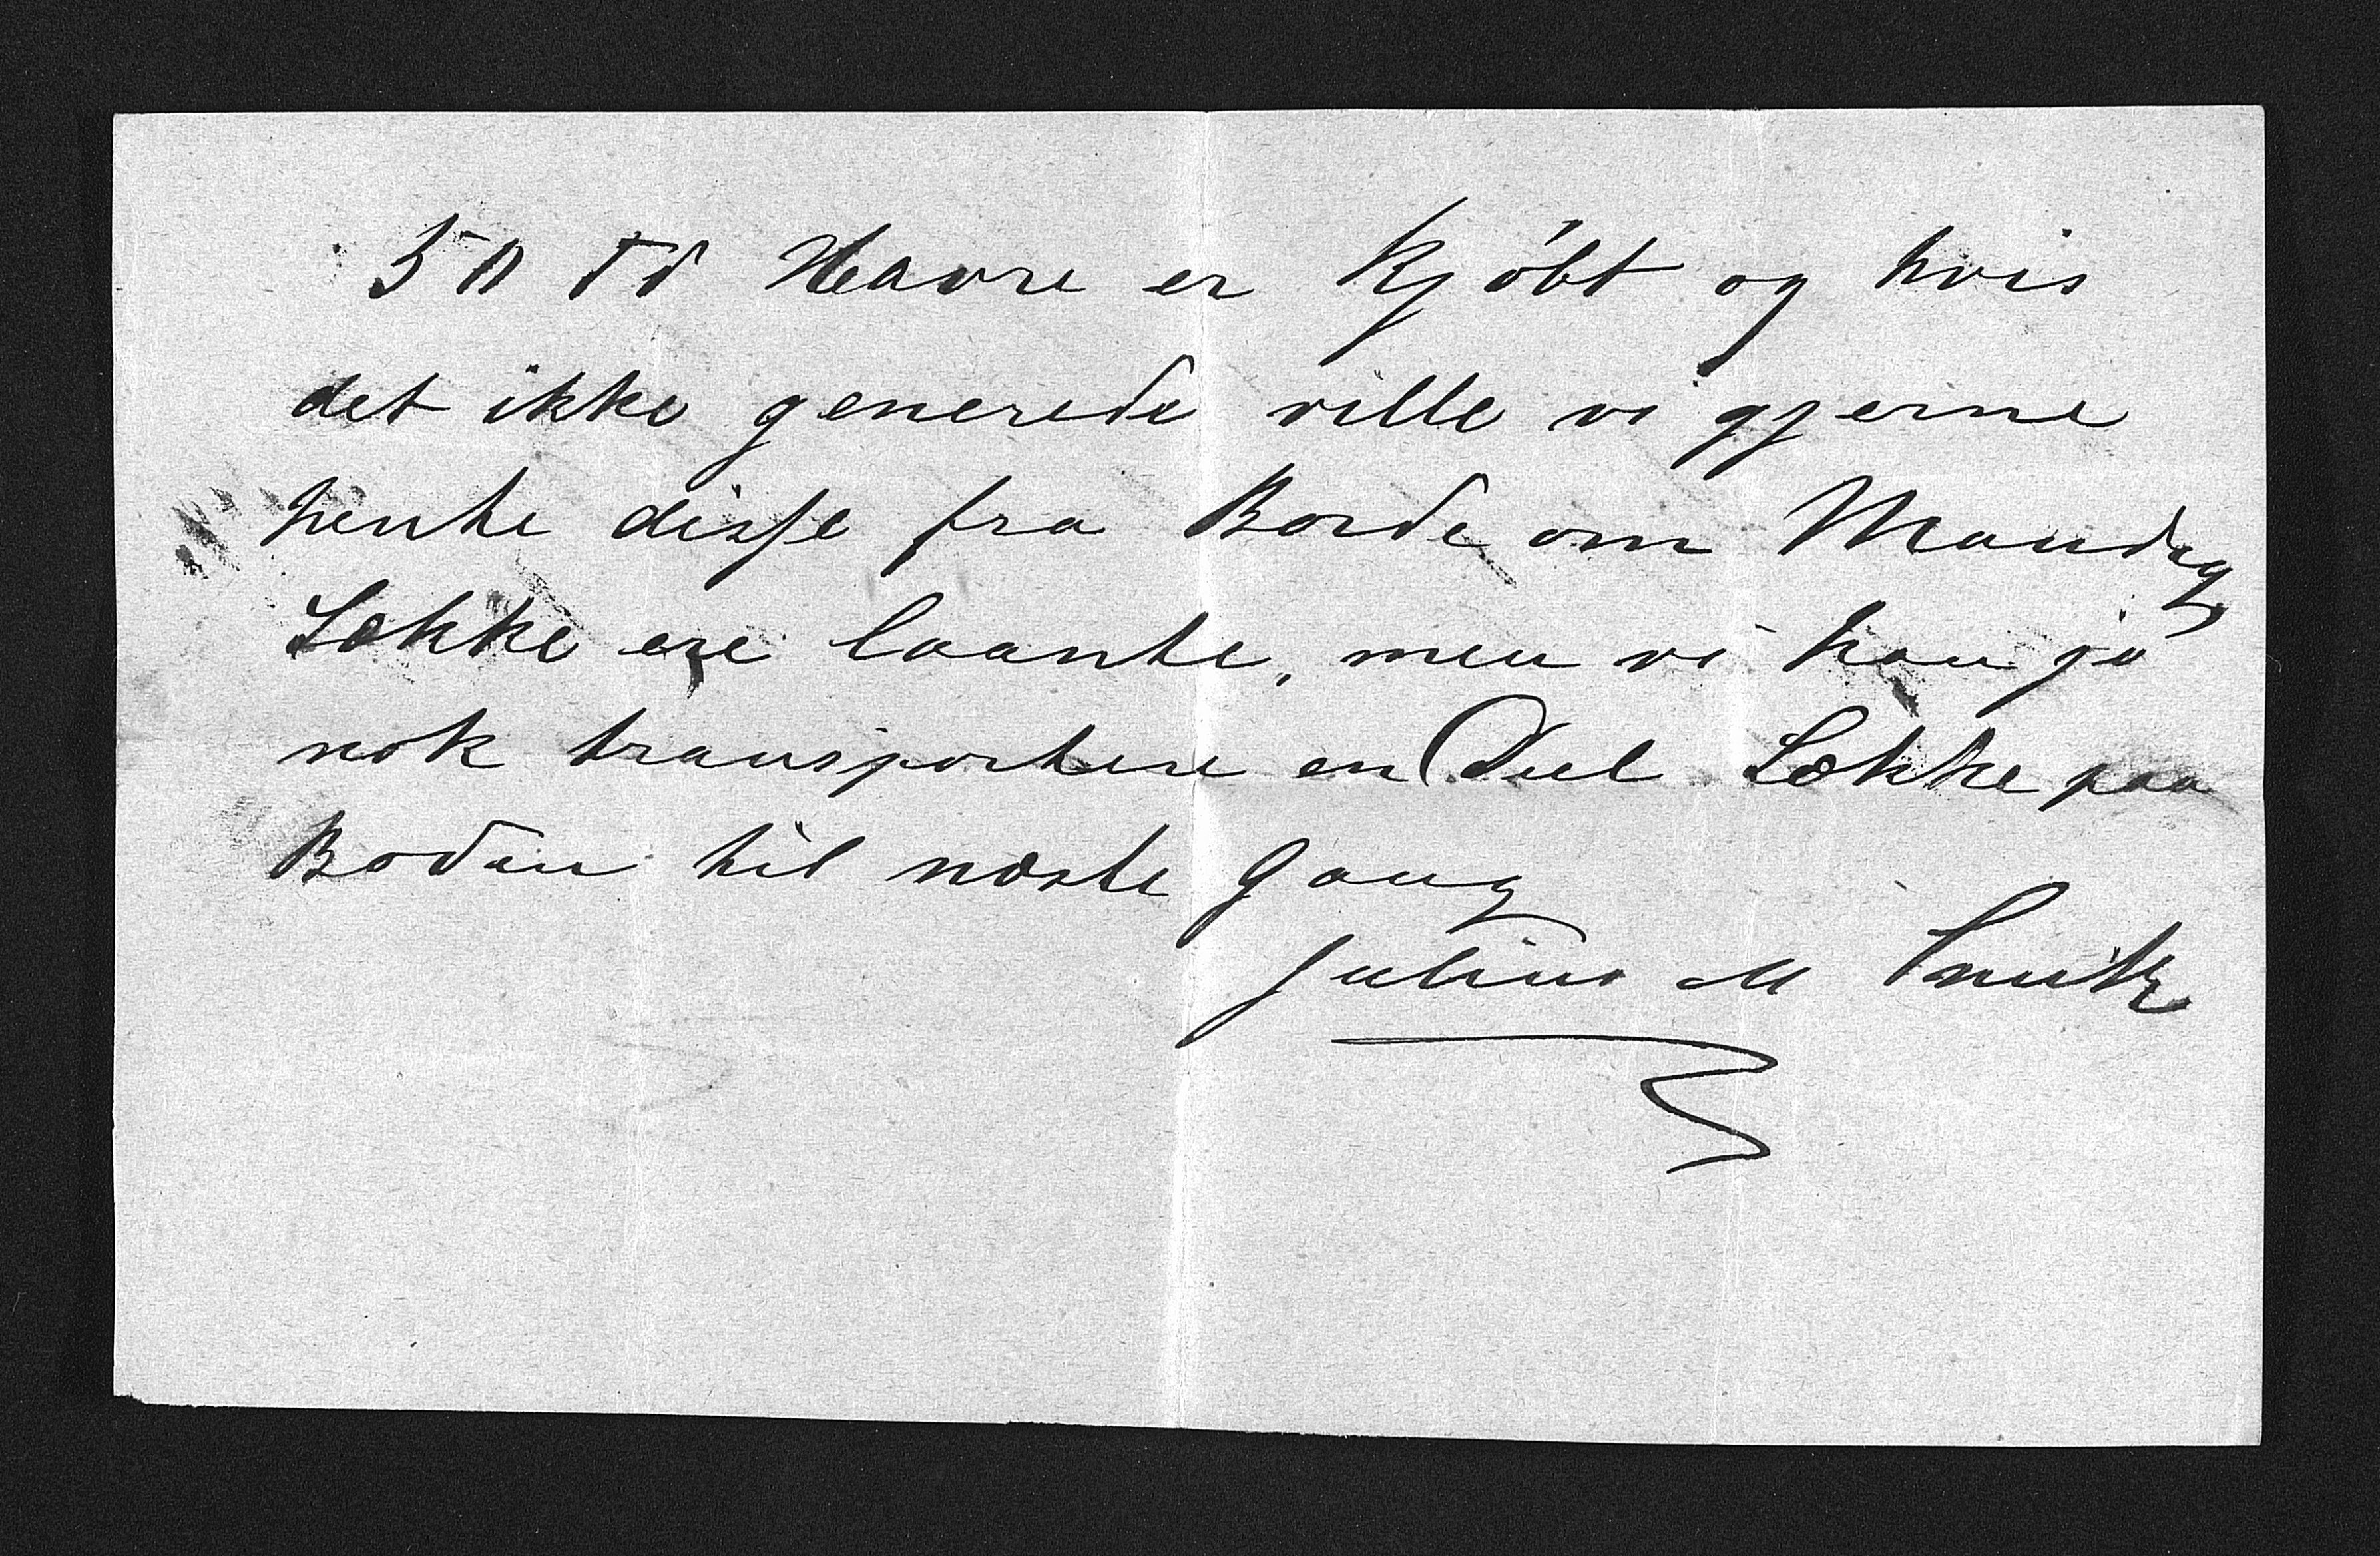 50 Td Havre er kjóbt og hvis
det ikke generede ville vi gjerne
hente disse fra Borde om Mandag,
Sække ere laante, men vi kan jo
nok transportere en Deel Sække paa
Boden til næste Gang
Julius M